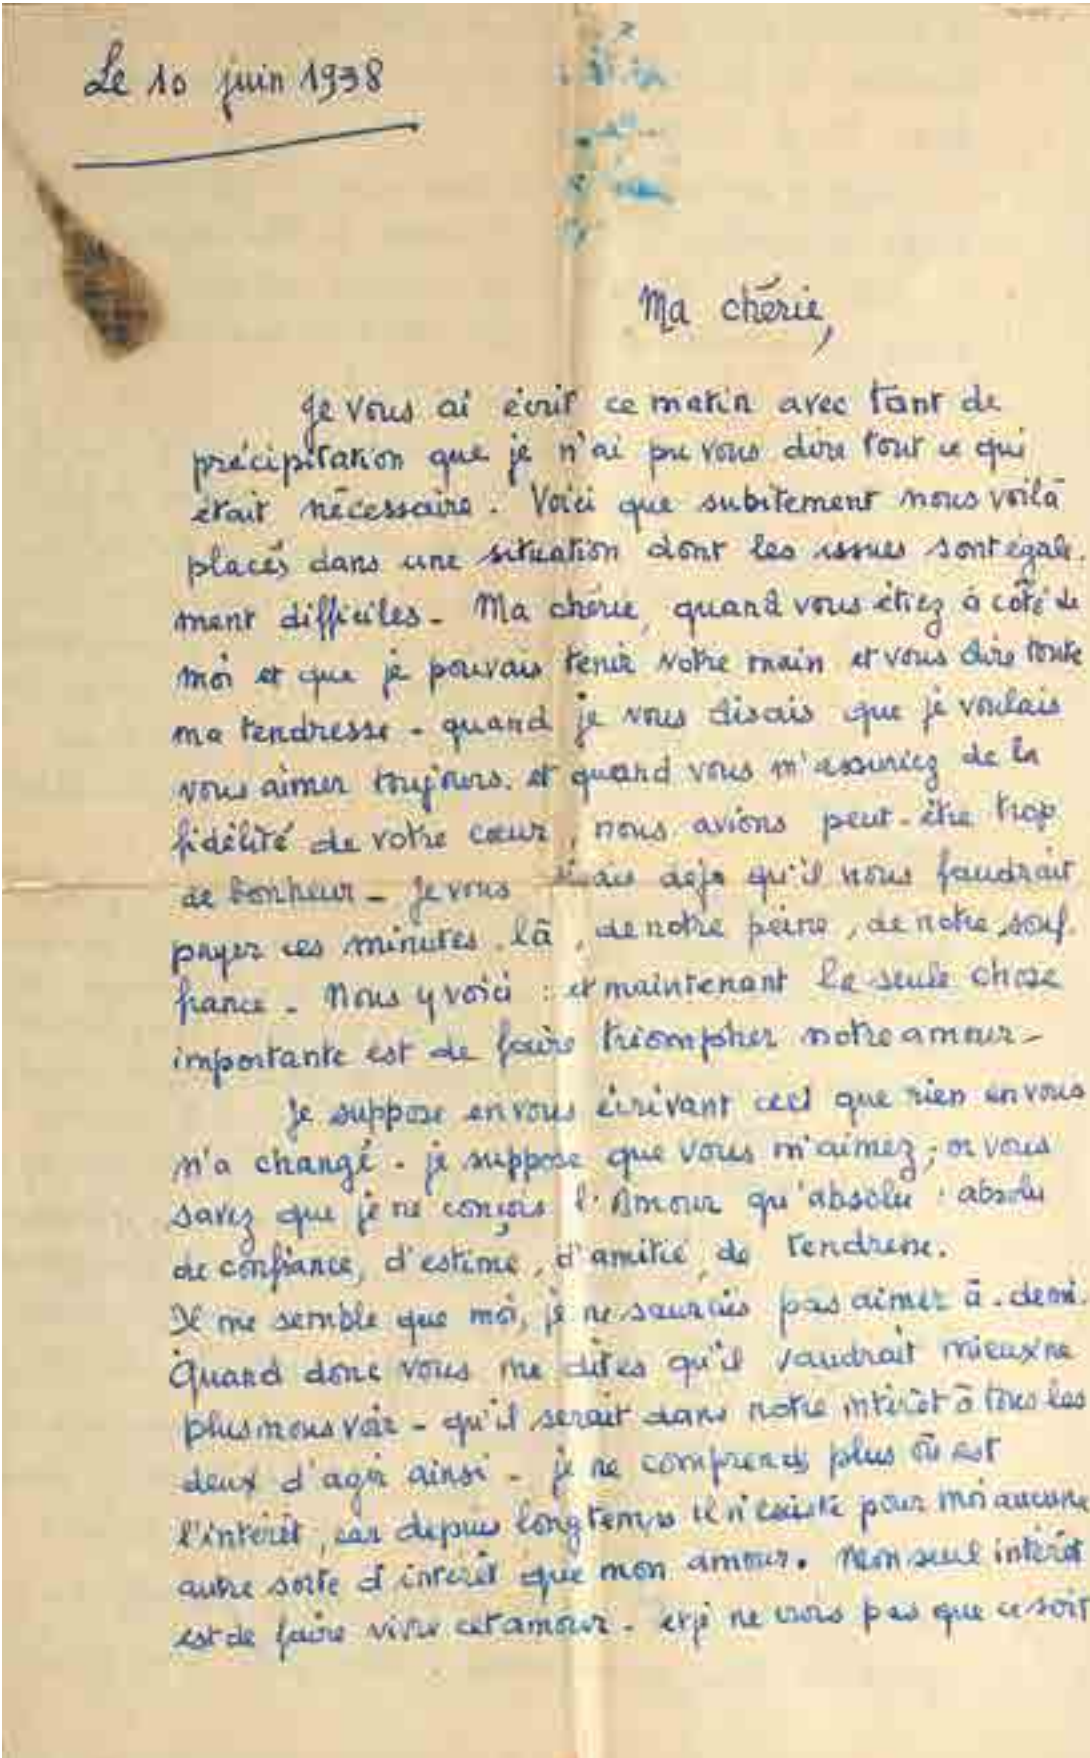 Le 10 juin 1938
Ma chérie,
Je vous ai écrit ce matin avec tant de
précipitation que je n'ai pu vous dire tout ce qui
était nécessaire. Voici que subitement nous voilà
placés dans une situation dont les issues sont égale-
ment difficiles - Ma chérie, quand vous étiez à côté de
moi et que je pouvais tenir votre main et vous dire toute
ma tendresse - quand je vous disais que je voulais
vous aimer toujours. et quand vous m'assuriez de la
fidélité de votre cœur, nous avions peut-être trop
de bonheur - Je vous déjà qu'il nous faudrait
payer ces minutes-là, de notre peine, de notre souf-
france - Nous y voici : et maintenant la seule chose
importante est de faire triompher notre amour -
Je suppose en vous écrivant ceci que rien en vous
n'a changé - je suppose que vous m'aimez ; or vous
savez que je ne conçois l'Amour qu'absolu : absolu
de confiance, d'estime, d'amitié, de tendresse.
Il me semble que moi, je ne saurais pas aimer à-demi.
Quand donc vous me dites qu'il vaudrait mieux ne
plus nous voir - qu'il serait dans notre intérêt à tous les
deux d'agir ainsi - je ne comprends plus où est
l'intérêt, car depuis longtemps il n'existe pour moi aucune
autre sorte d'intérêt que mon amour. Mon seul intérêt
est de faire vivre cet amour - et je ne crois pas que ce soit